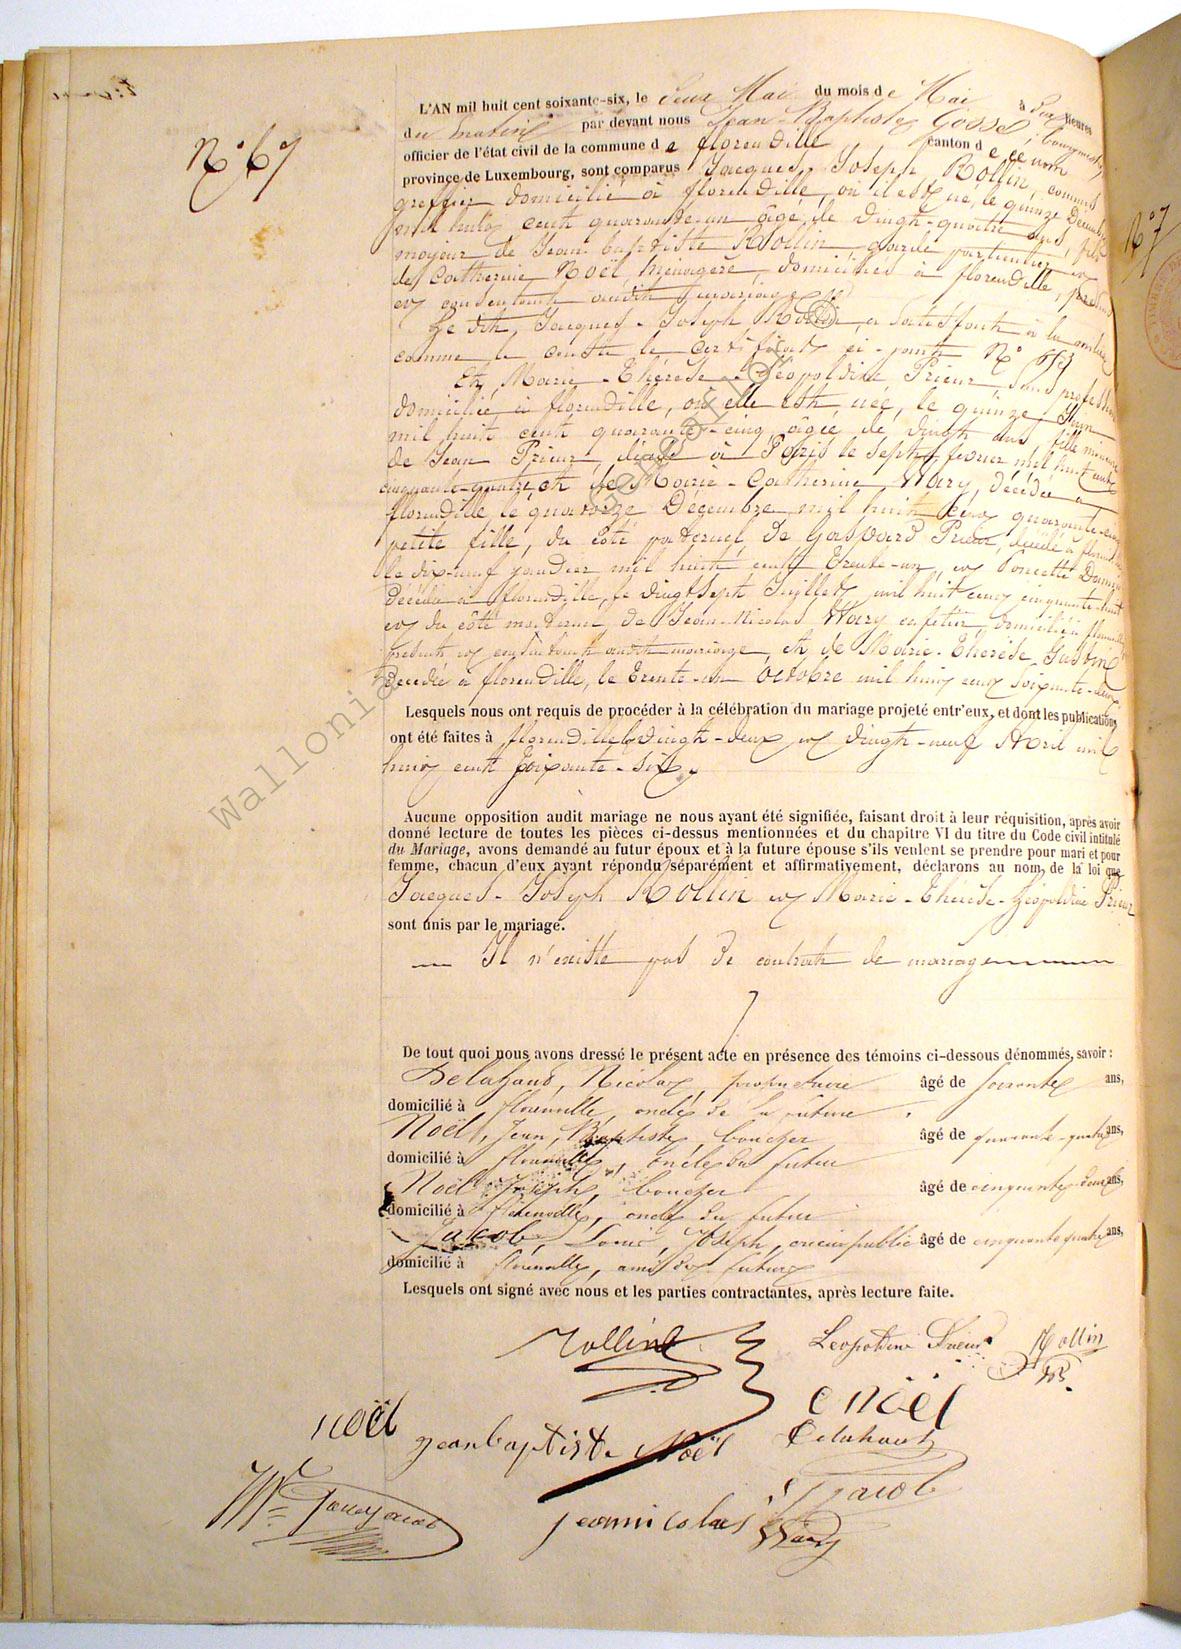 N° 67
L'AN mil huit cent soixante-six, le deux Mai du mois de Mai à dix heures
du matin par devant nous Jean-Baptiste Gosse, bourgmestre
officier de l'état civil de la commune de florenville canton de
province de Luxembourg, sont comparus Jacques Joseph Rollin, commis
greffier domicilié à florenville, où il est né, le quinze Décembre
mil huit cent quarante-un âgé de vingt-quatre ans, fils
majeur de Jean Baptiste Rollin garde particulier et
de Catherine Noël, ménagère, domiciliés à florenville, présents
et consentant audit mariage
Le dit, Jacques-Joseph Rollin, a satisfait à la milice
comme le conste le certificat ci-joint N°
Et Marie-Thérèse-Léopoldine Prieur, sans profession
domiciliée à florenville, où elle est née, le quinze Juin
mil huit cent quarante-cinq, âgée de vingt ans, fille mineure
de Jean Prieur, décédé à Paris le sept février mil huit cent
cinquante-quatre et de Marie-Catherine Wary, décédée à
florenville le quatorze Décembre mil huit cent quarante-
petite fille, du côté paternel de Gaspard Prieur, décédé à florenville
le dix-neuf janvier mil huit cent trente-un, et Poncette
décédée à florenville, le vingt sept Juillet mil huit cent cinquante-huit
et du côté maternel, de Jean-Nicolas Wary cafetier, domicilié à florenville
présent et consentant audit mariage, et de Marie-Thérèse
décédée à florenville, le trente-un Octobre mil huit cent soixante-deux
Lesquels nous ont requis de procéder à la célébration du mariage projeté entr'eux, et dont les publications
ont été faites à florenville les vingt-deux et vingt-neuf Avril mil
huit cent soixante-six.
Aucune opposition audit mariage ne nous ayant été signifiée, faisant droit à leur réquisition, après avoir
donné lecture de toutes les pièces ci-dessus mentionnées et du chapitre VI du titre du Code civil intitulé
du Mariage, avons demandé au futur époux et à la future épouse s'ils veulent se prendre pour mari et pour
femme, chacun d'eux ayant répondu séparément et affirmativement, déclarons au nom de la loi que
Jacques-Joseph Rollin et Marie-Thérèse-Léopoldine Prieur
sont unis par le mariage.
Il n'existe pas de contrat de mariage
De tout quoi nous avons dressé le présent acte en présence des témoins ci-dessous dénommés, savoir :
Delahaut, Nicolas, propriétaire âgé de soixante ans,
domicilié à florenville, oncle de la future
Noël, Jean, Baptiste, boucher âgé de quarante-quatre ans,
domicilié à florenville, oncle du futur
Noël Joseph, boucher âgé de cinquante-deux ans,
domicilié à florenville, oncle du futur
Jacob, Louis, Joseph, âgé de cinquante quatre ans,
domicilié à florenville, ami des futurs
Lesquels ont signé avec nous et les parties contractantes, après lecture faite.
Rollin Leopoldine Prieur Rollin
noël jean baptiste Noël c noël
Delahaut
Jacob
jean nicolas Wary
N° 7
Wallonia